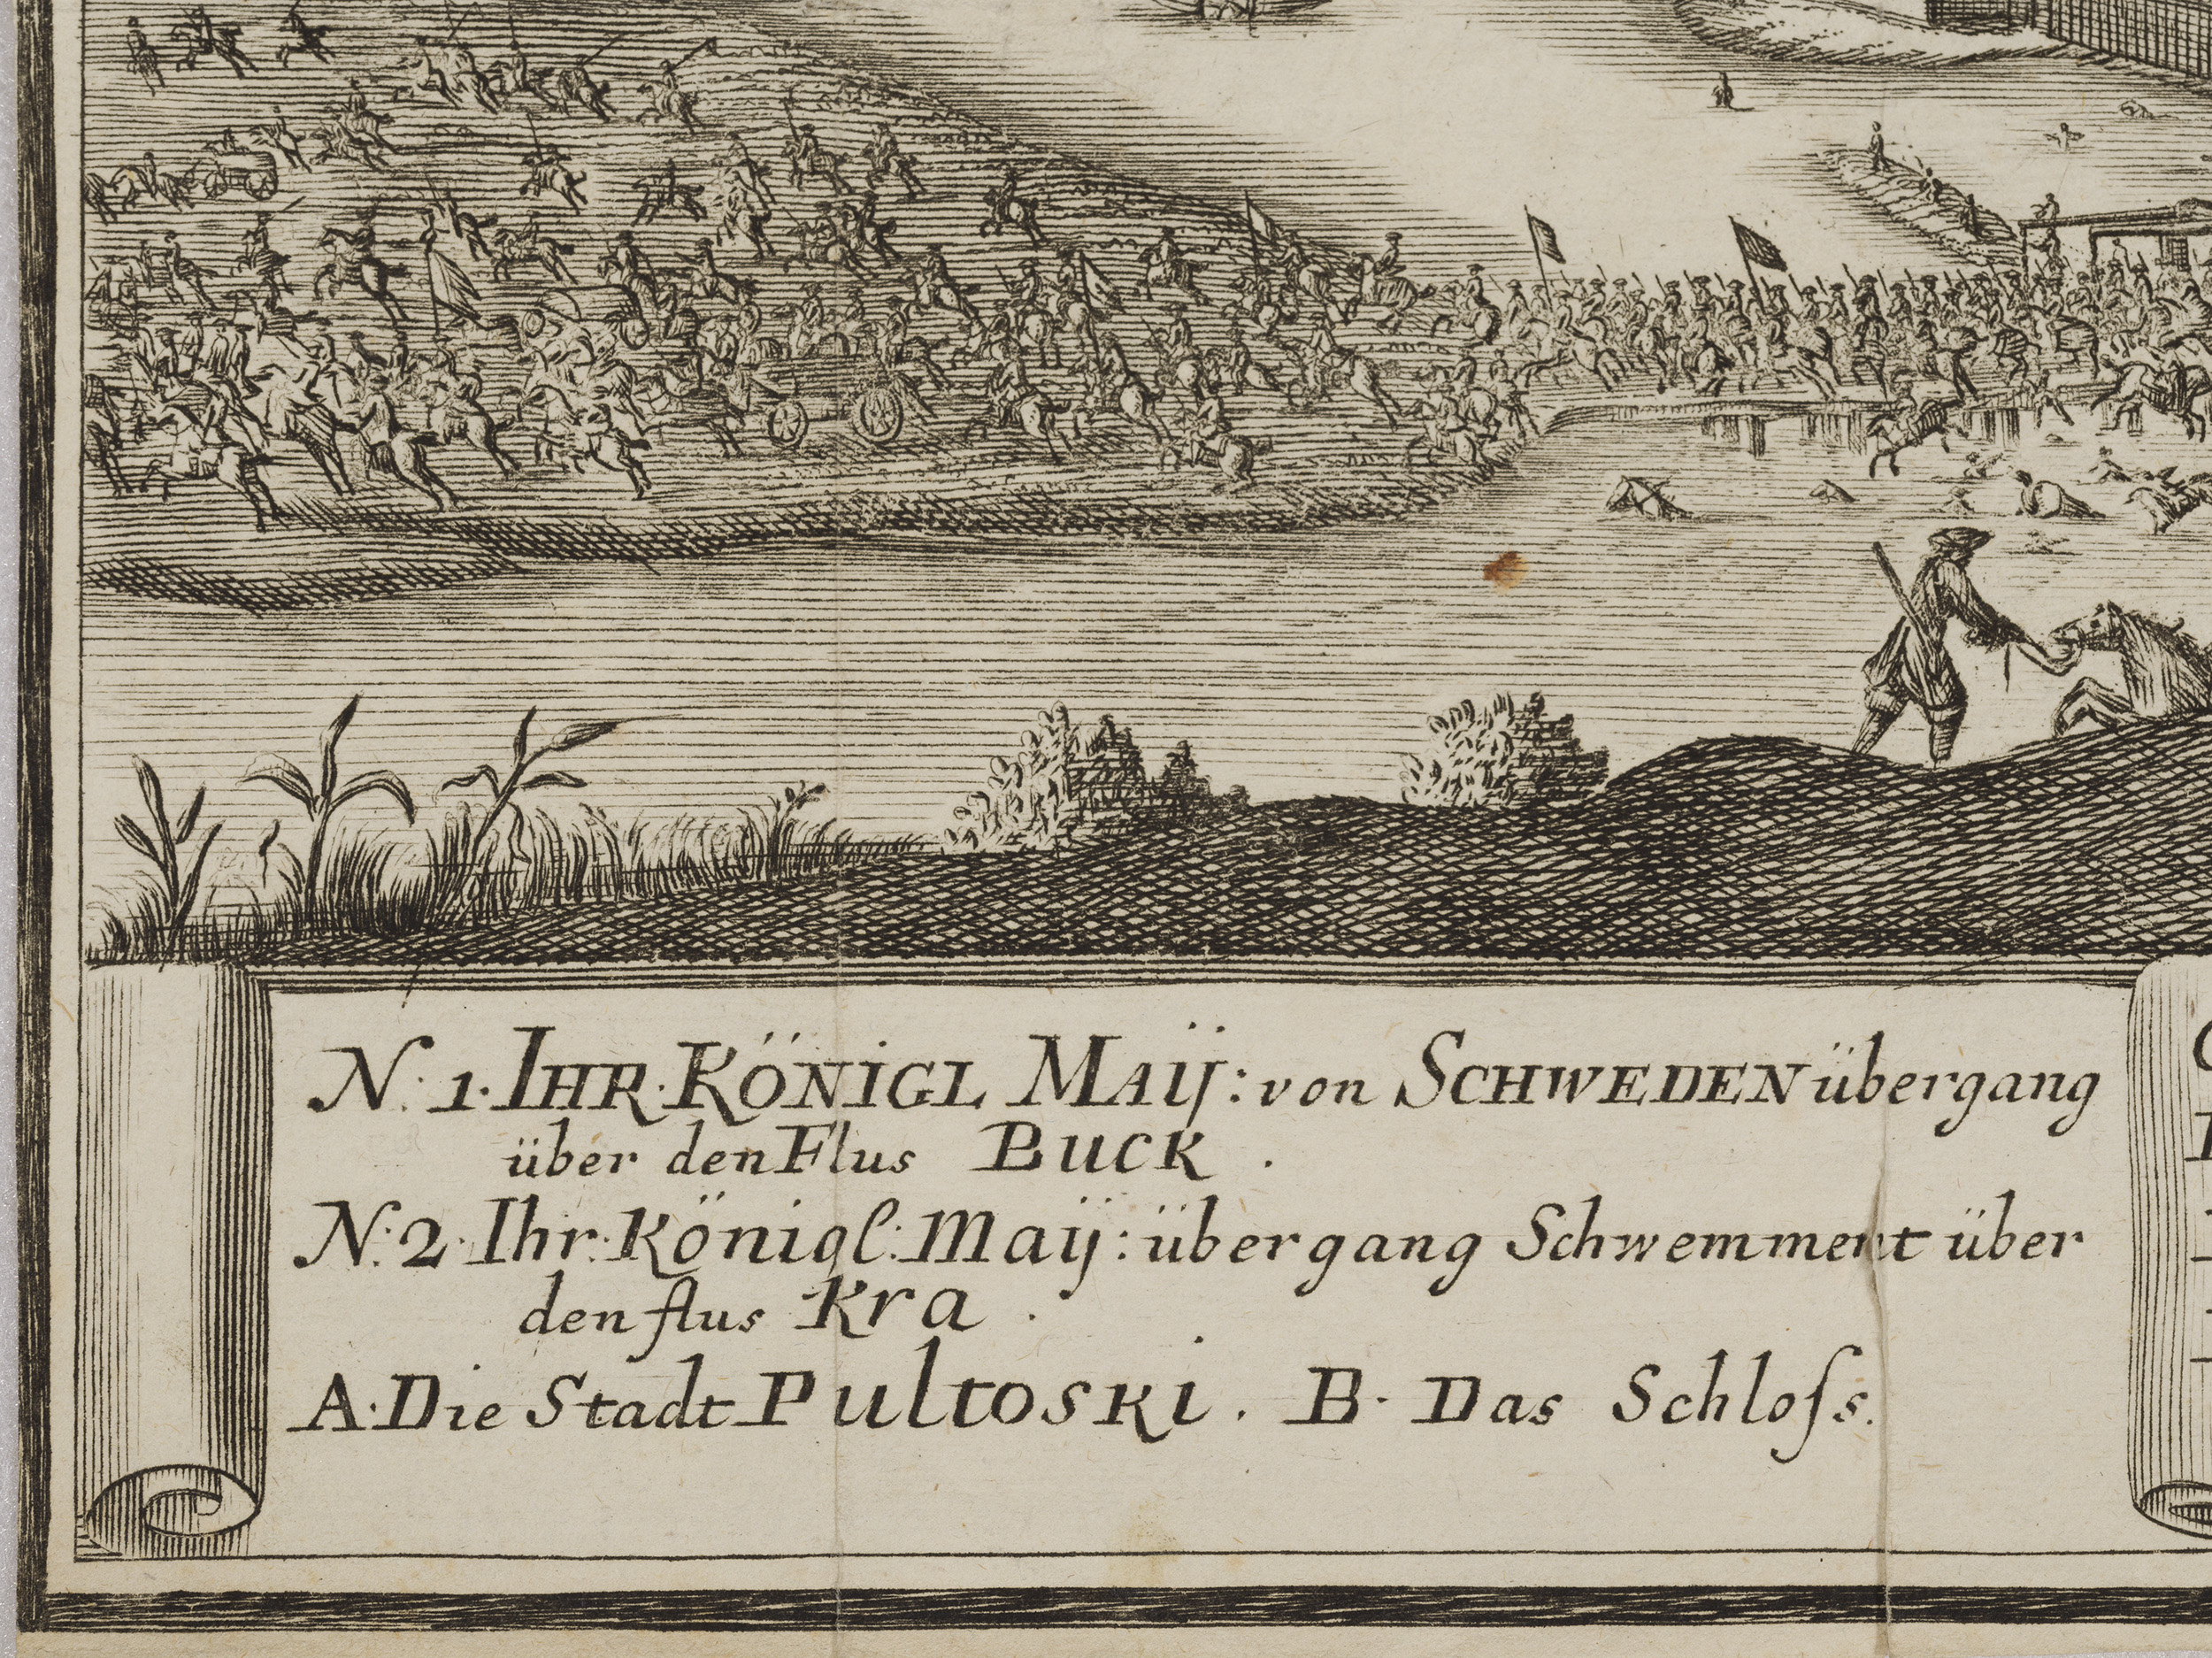 N: 1. IHR. KÖNIGL MAIJ: von SCHWEDEN übergang
über den Flus BUCK.
N: 2. Ihr. Königl: Maij: übergang Schwemment über
den flus Kra.
A. Die Stadt Pultoski. B. Das Schloſs.